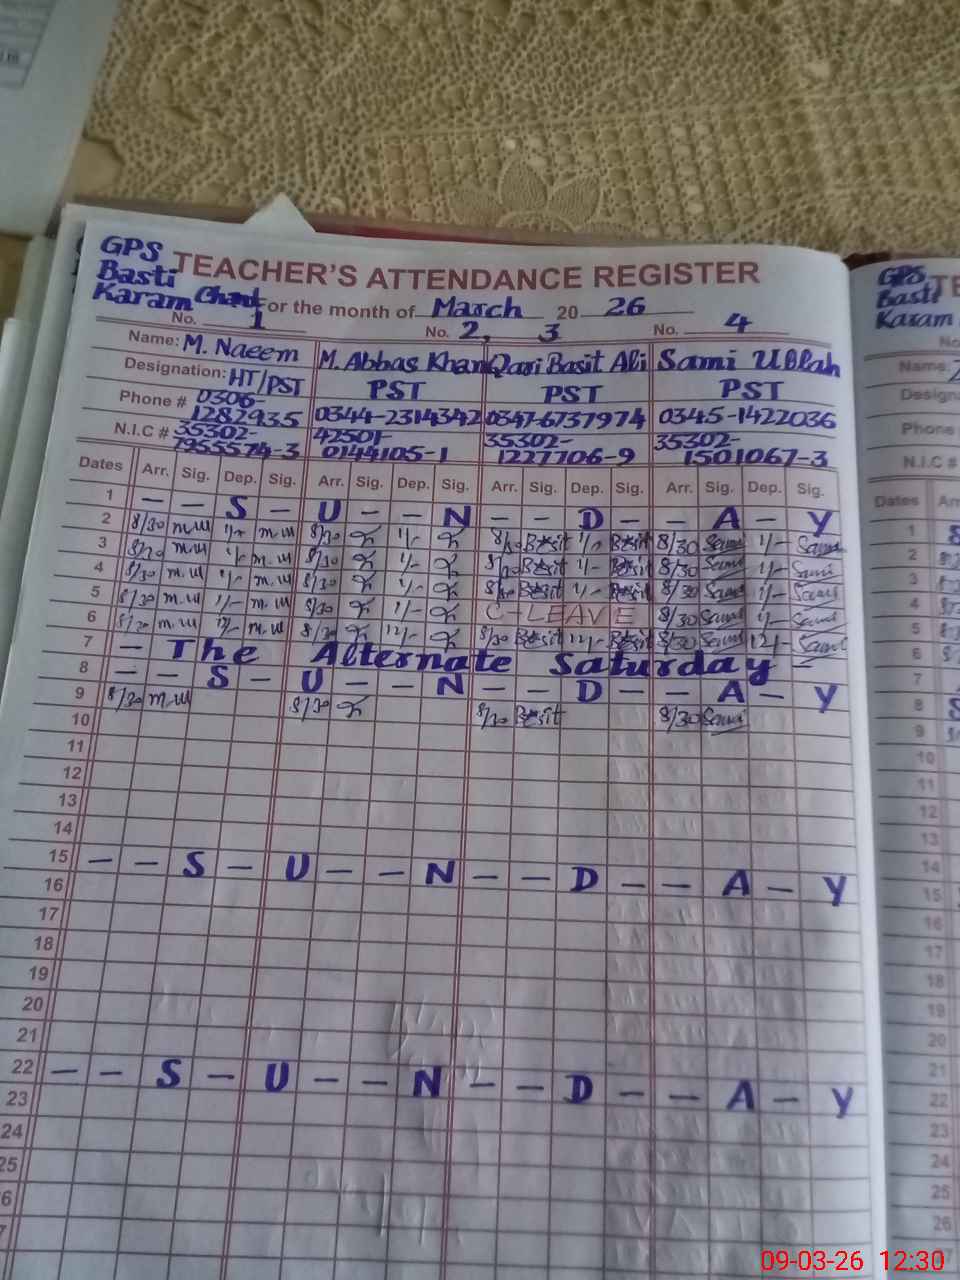 GPS
Basti TEACHER'S ATTENDANCE REGISTER
Karam Chand For the month of March 20 26
No. 1 No. 2, 3 No. 4
Name: M. Naeem M. Abbas Khan Qari Basit Ali Sami Ullah
Designation: HT/PST PST PST PST
Phone # 0306-1282935 0344-2314342 0347-6737974 0345-1422036
N.I.C # 35302-7955574-3 42501-0144105-1 35302-1227706-9 35302-1501067-3
Dates Arr. Sig. Dep. Sig. Arr. Sig. Dep. Sig. Arr. Sig. Dep. Sig. Arr. Sig. Dep. Sig.
1 - - S - U - - N - - D - - A - Y
2 8/30 1/- 8/30 1/- 8/30 Basit 1/- Basit 8/30 Sami 1/- Sami
3 8/30 1/- 8/30 1/- 8/30 Basit 1/- Basit 8/30 Sami 1/- Sami
4 8/30 1/- 8/30 1/- 8/30 Basit 1/- Basit 8/30 Sami 1/- Sami
5 8/30 1/- 8/30 1/- C-LEAVE 8/30 Sami 1/- Sami
6 8/30 12/- 8/30 12/- 8/30 Basit 12/- Basit 8/30 Sami 12/- Sami
7 - The Alternate Saturday -
8 - - S - U - - N - - D - - A - Y
9 8/30 8/30 8/30 Basit 8/30 Sami
10
11
12
13
14
15 - - S - U - - N - - D - - A - Y
16
17
18
19
20
21
22 - - S - U - - N - - D - - A - Y
23
24
25
GPS
Basti
Karam
Name:
Phone
N.I.C #
Dates
1
2
3
4
5
6
7
8
9
10
11
12
13
14
15
16
17
18
19
20
21
22
23
24
25
26
09-03-26 12:30